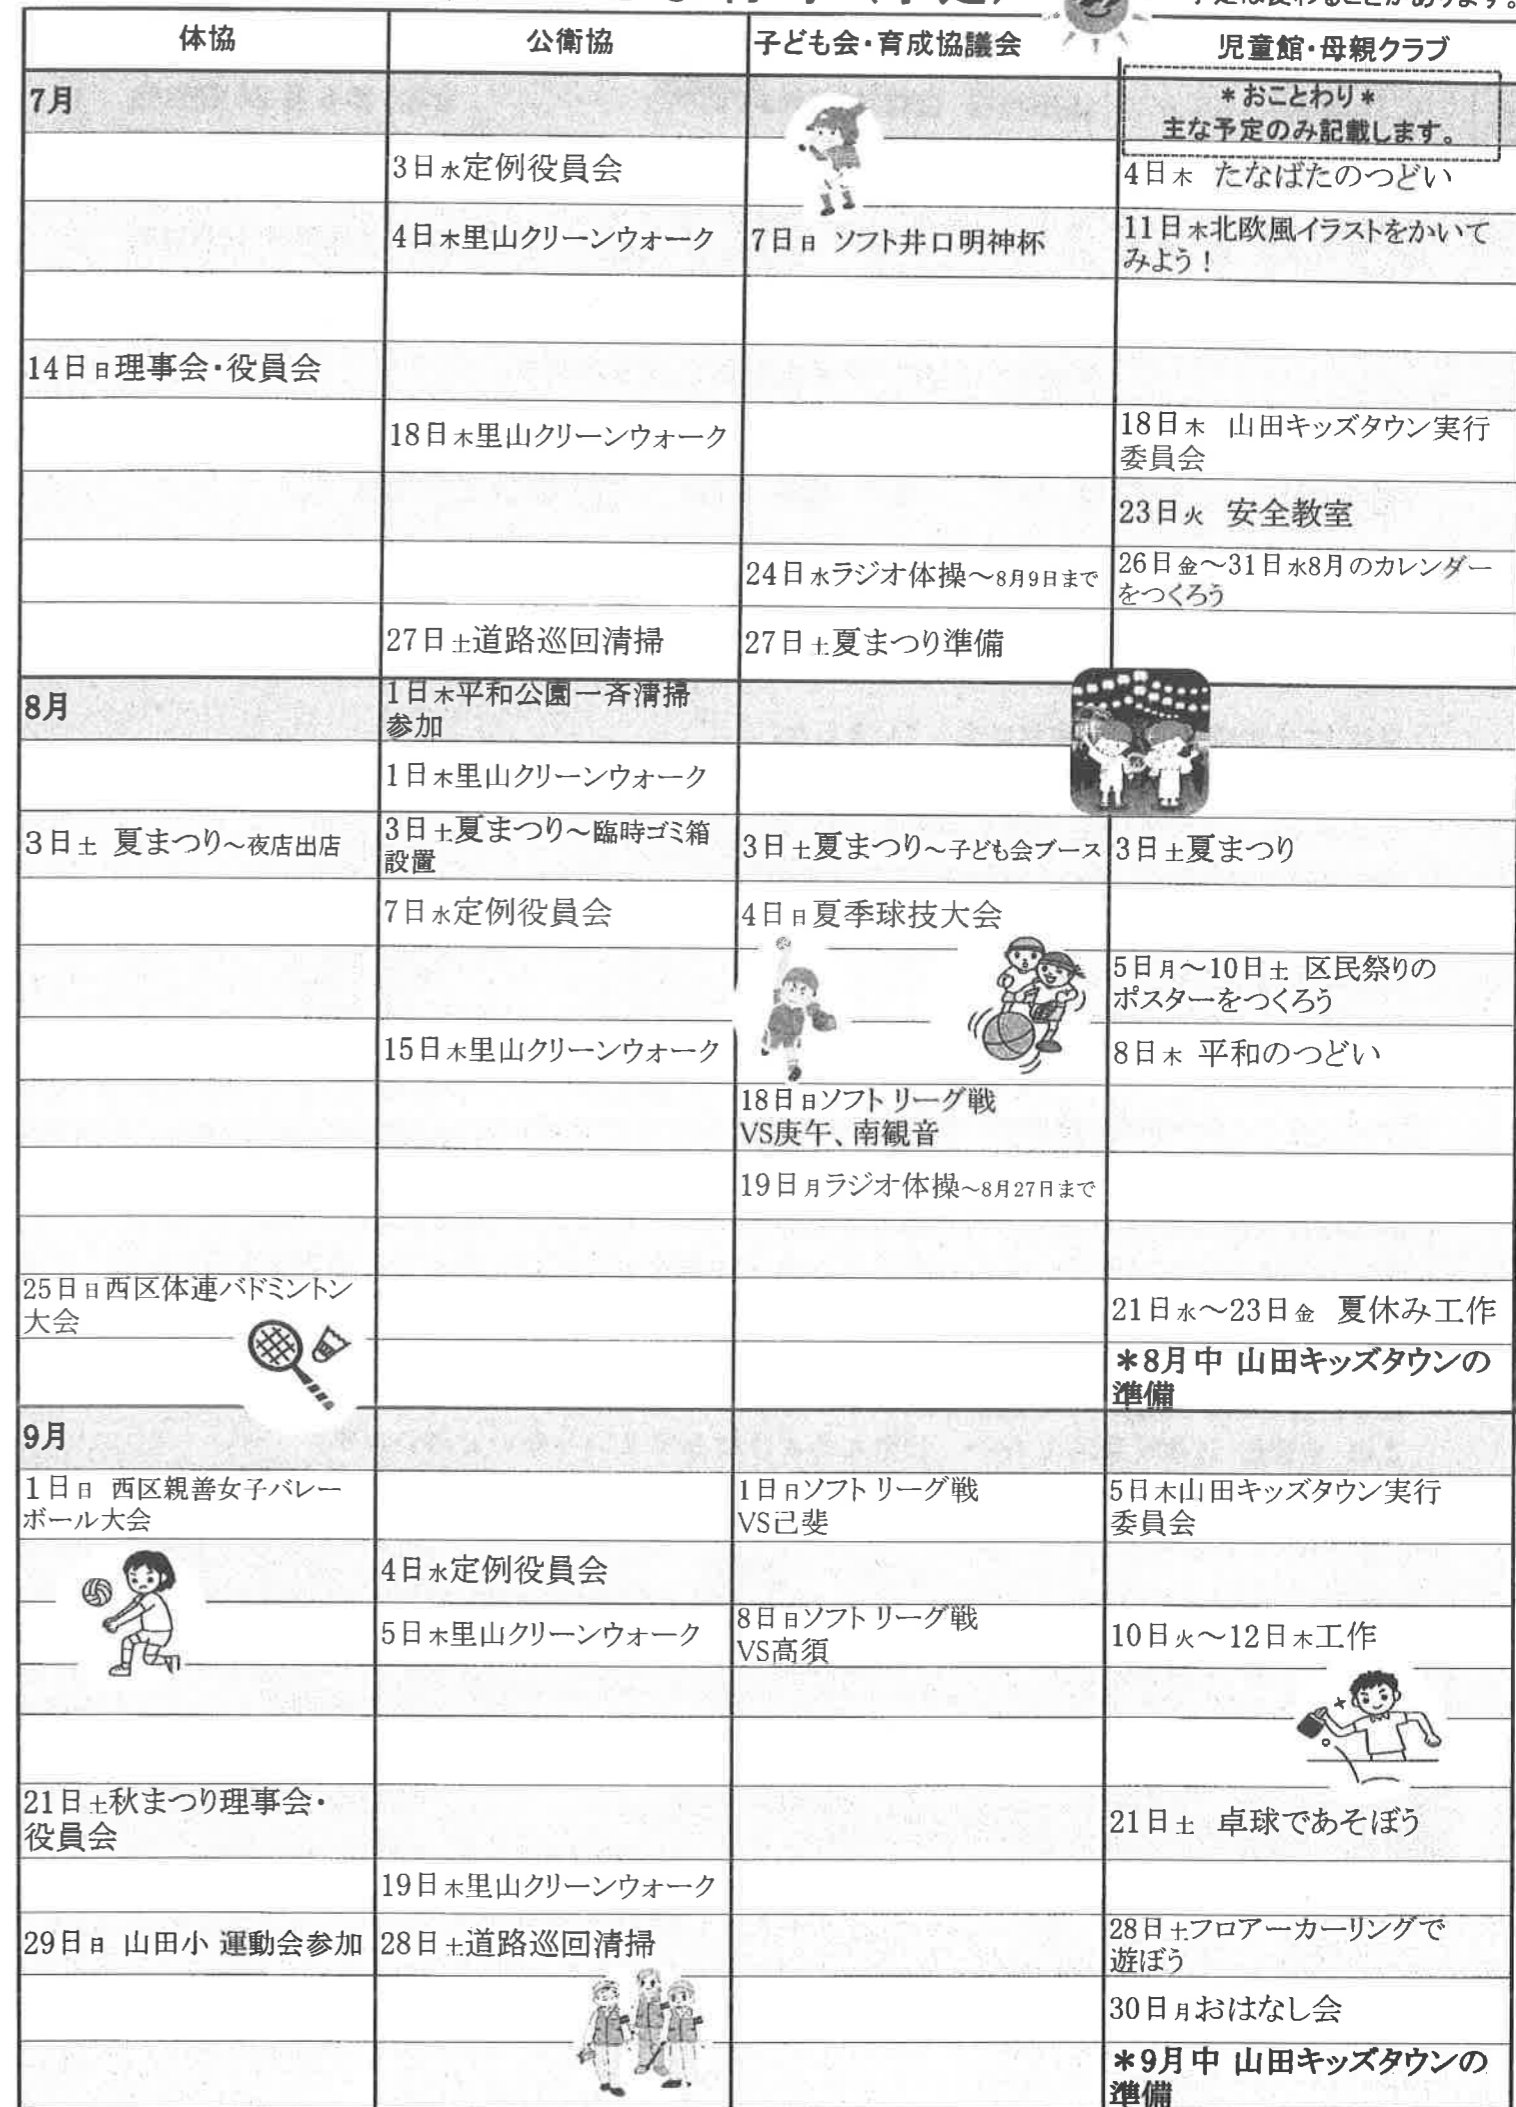 予定は変わることがあります。
体協 公衛協 子ども会・育成協議会 児童館・母親クラブ
7月
＊おことわり＊
主な予定のみ記載します。
3日水定例役員会
4日木 たなばたのつどい
4日木里山クリーンウォーク
7日日 ソフト井口明神杯
11日木北欧風イラストをかいて
みよう！
14日日理事会・役員会
18日木里山クリーンウォーク
18日木 山田キッズタウン実行
委員会
23日火 安全教室
24日水ラジオ体操～8月9日まで
26日金～31日水8月のカレンダー
をつくろう
27日土道路巡回清掃
27日土夏まつり準備
8月
1日木平和公園一斉清掃
参加
1日木里山クリーンウォーク
3日土 夏まつり～夜店出店
3日土夏まつり～臨時ゴミ箱
設置
3日土夏まつり～子ども会ブース
3日土夏まつり
7日水定例役員会
4日日夏季球技大会
5日月～10日土 区民祭りの
ポスターをつくろう
15日木里山クリーンウォーク
8日木 平和のつどい
18日日ソフトリーグ戦
VS庚午、南観音
19日月ラジオ体操～8月27日まで
25日日西区体連バドミントン
大会
21日水～23日金 夏休み工作
＊8月中 山田キッズタウンの
準備
9月
1日日 西区親善女子バレー
ボール大会
1日日ソフトリーグ戦
VS己斐
5日木山田キッズタウン実行
委員会
4日水定例役員会
5日木里山クリーンウォーク
8日日ソフトリーグ戦
VS高須
10日火～12日木工作
21日土秋まつり理事会・
役員会
21日土 卓球であそぼう
19日木里山クリーンウォーク
29日日 山田小 運動会参加
28日土道路巡回清掃
28日土フロアーカーリングで
遊ぼう
30日月おはなし会
＊9月中 山田キッズタウンの
準備